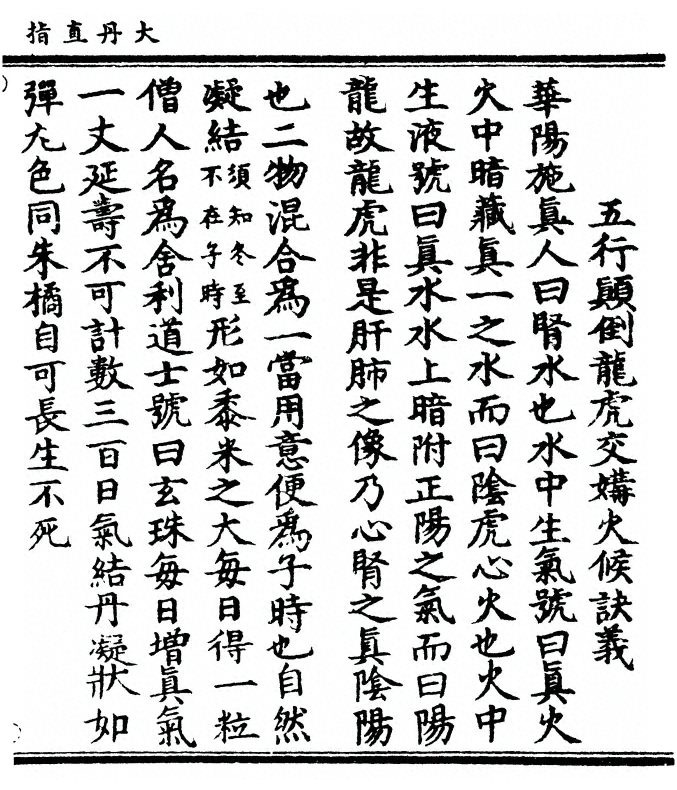 大丹直指
五行顚倒龍虎交媾火候訣義
華陽施眞人曰腎水也水中生氣號曰眞火
火中暗藏眞一之水而曰陰虎心火也火中
生液號曰眞水水上暗附正陽之氣而曰陽
龍故龍虎非是肝肺之像乃心腎之眞陰陽
也二物混合爲一當用意便爲子時也自然
凝結須知冬至不在子時形如黍米之大每日得一粒
僧人名爲舍利道士號曰玄珠每日增眞氣
一丈延壽不可計數三百日氣結丹凝狀如
彈尢色同朱橘自可長生不死